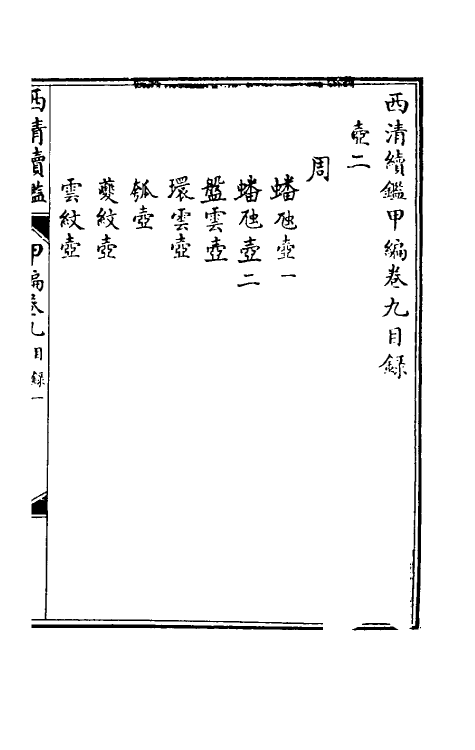 西清續鑑甲編卷九目錄
壺二
周
蟠虺壺一
蟠虺壺二
盤雲壺
環雲壺
瓠壺
夔紋壺
雲紋壺
西清續鑑 甲編卷九目錄一